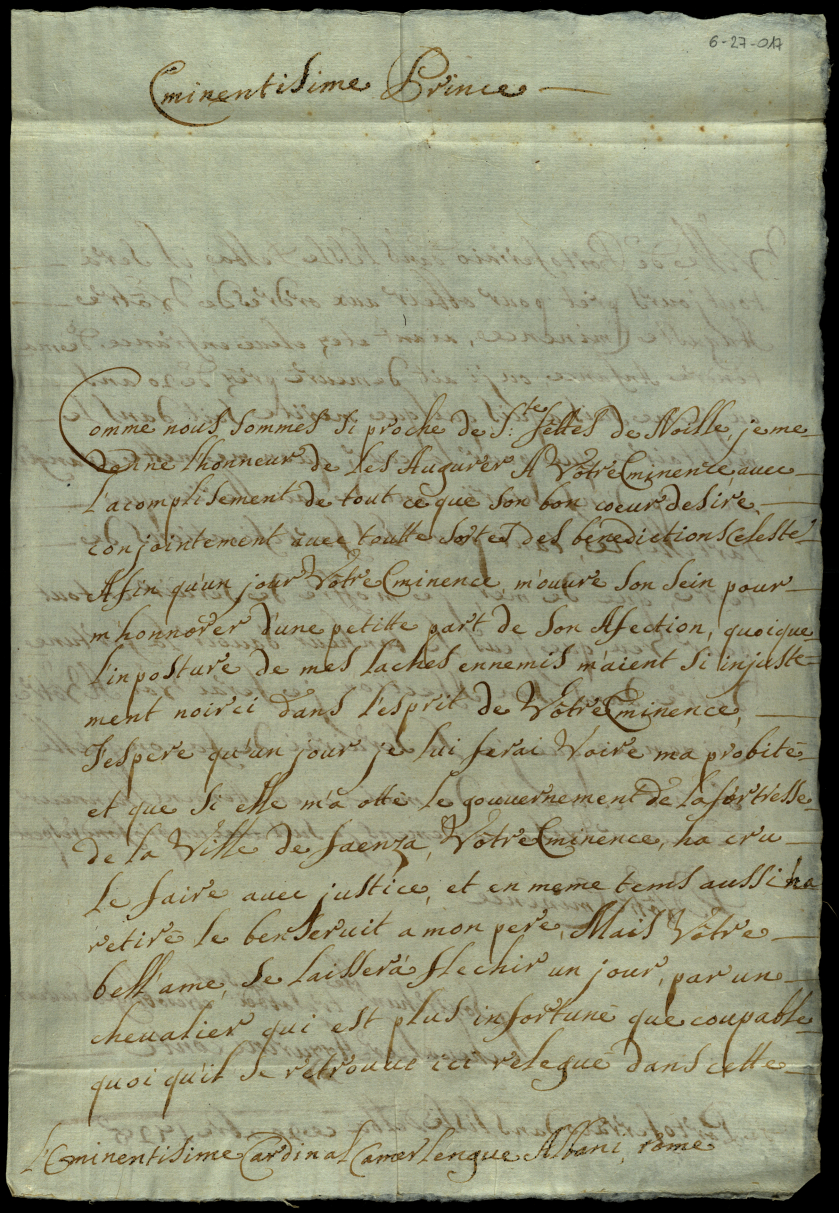 6-27-017
Eminentisime Prince
Comme nous sommes si proche de S.te fêttes de Noille, je me
donne lhonneur de les Augurer A Vôtre Eminence, avec
l'acomplisement de tout ce que son bon coeur desire
conjointement avec toutte sortes des bènedictions Celeste
Afin qu'un jour Vôtre Eminence, m'ouvre son sein pour
m'honnorer d'une petitte part de son Afection, quoique
l'inposture de mes laches ennemis m'aient si injuste-
ment noirci dans l'esprit de Vôtre Eminence,
J'espere qu'un jour je lui ferai Voire ma probitè
et que si elle m'a ottè le gouvernement de la fortresse
de la Ville de faenza, Vôtre Eminence, ha cru
le faire avec justice, et en meme tems aussi ha
retirè le benservit a mon pere, Mais Vôtre
bell'ame, se laisserà flechir un jour, par un
chevalier qui est plus infortunè que coupable
quoi qu'il se retrouve ici relegué dans cette
l'Eminentisime Cardinal Camerlengue Albani, rome